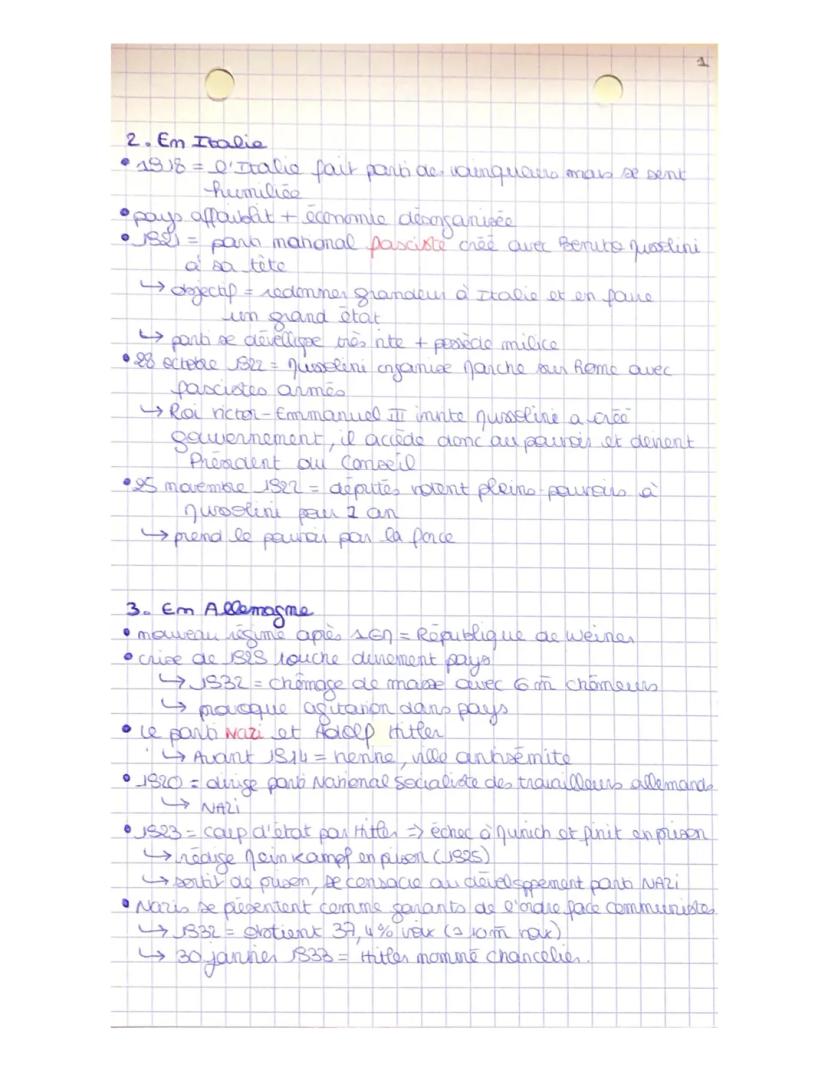 1
2. En Italie
• 1918 = l'Italie fait parti des vainqueurs mais se sent
humiliée
• pays affaiblit + économie désorganisée
• 1921 = parti national fasciste créé avec Benito Mussolini
à sa tête
↳ objectif = redonner grandeur à Italie et en faire
un grand état
↳ parti se dévellope très vite + possède milice
• 28 octobre 1922 = Mussolini organise Marche sur Rome avec
fascistes armés
↳ Roi Victor-Emmanuel III invite Mussolini a créé
gouvernement, il accède donc au pouvoir et devient
Président du Conseil
• 25 novembre 1922 = députés votent pleins-pouvoirs à
Mussolini pour 1 an
↳ prend le pouvoir par la force
3. En Allemagne
• nouveau régime après 1GM = République de Weimer
• crise de 1929 touche durement pays
↳ 1932 = chômage de masse avec 6 m chômeurs
↳ provoque agitation dans pays
• Le parti Nazi et Adolp Hitler
↳ Avant 1914 = Vienne, ville antisémite
• 1920 = dirige parti National Socialiste des travailleurs allemands
↳ NAZI
• 1923 = coup d'état par Hitler => échec à Munich et finit en prison
↳ rédige Mein Kampf en prison (1925)
↳ sortit de prison, se consacre au dévelsppement parti NAZI
• Nazis se présentent comme garants de l'ordre face communistes
↳ 1932 = obtient 37,4% voix ( 10m voix)
↳ 30 janvier 1933 = Hitler nommé chancelier.